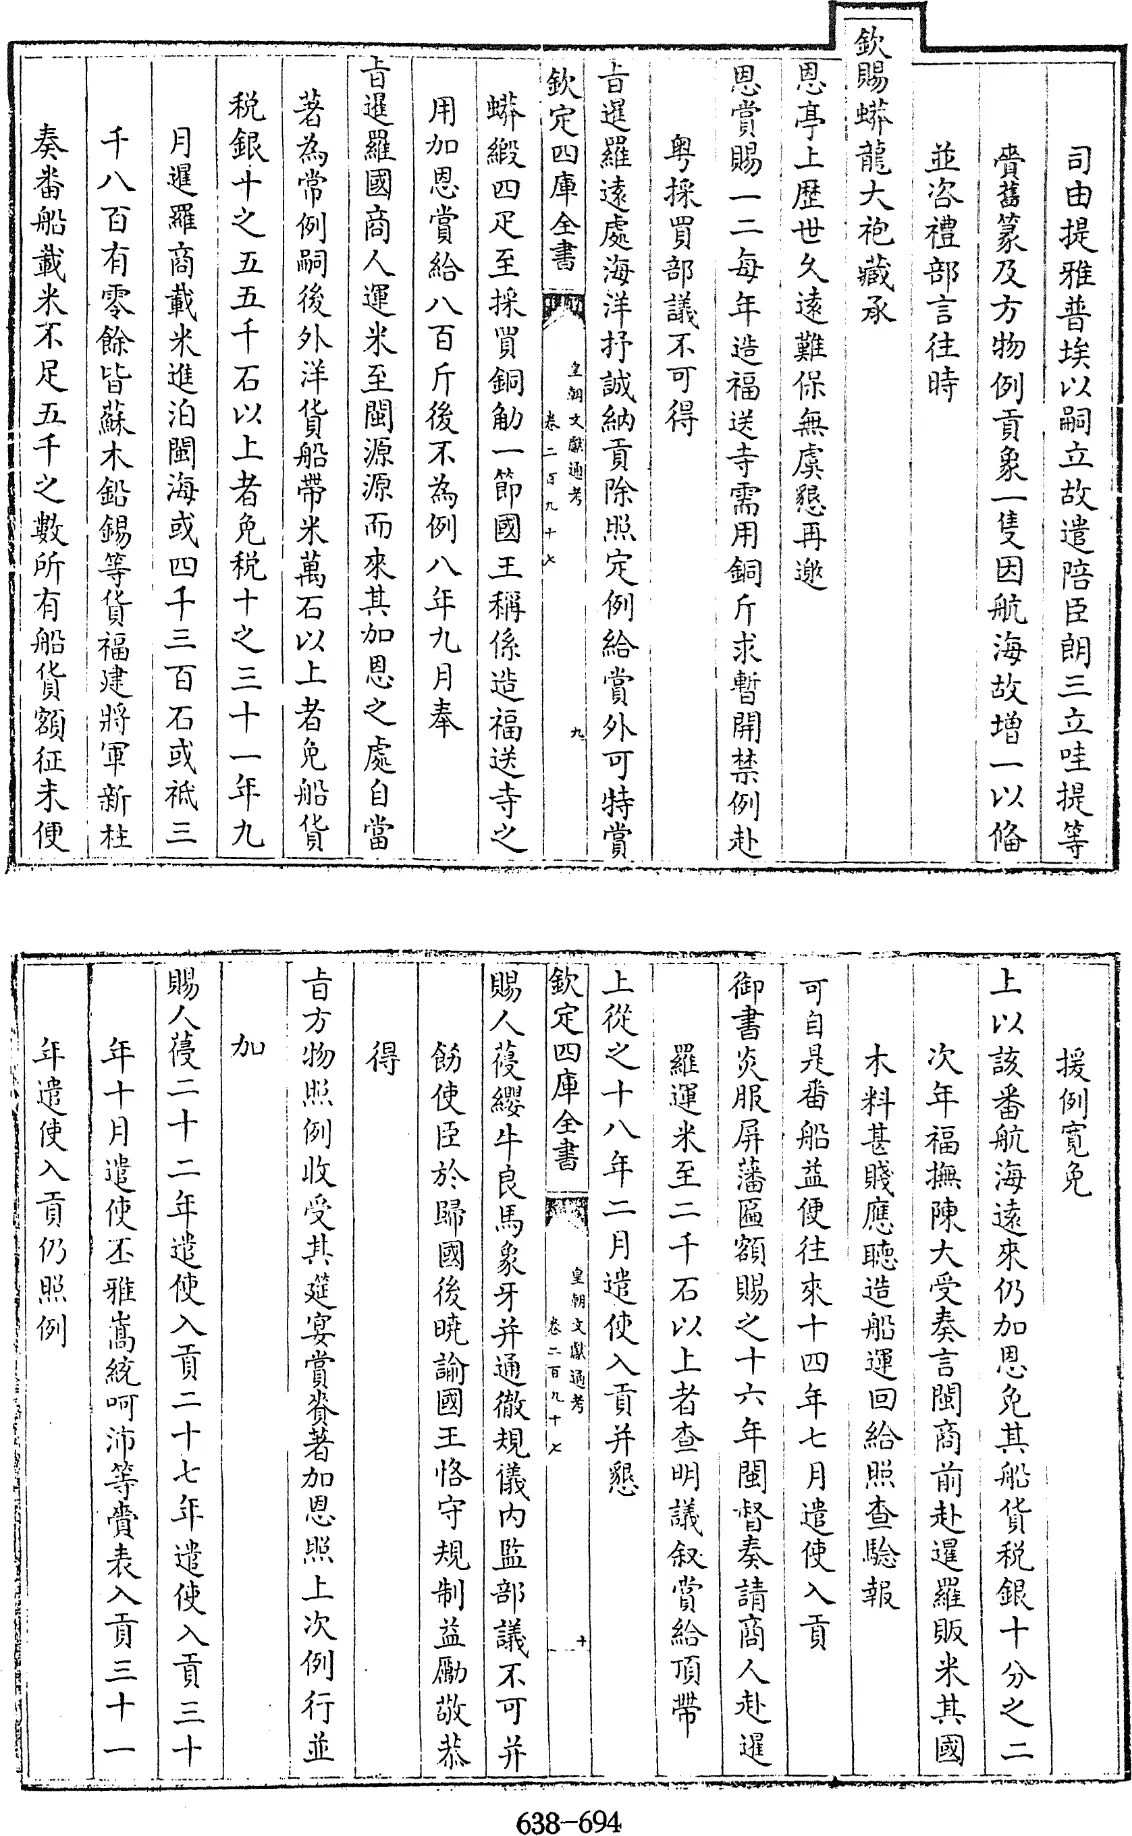 司由提雅普埃以嗣立故遣陪臣朗三立哇提等
齎舊篆及方物例貢象一隻因航海故增一以備
並咨禮部言往時
欽賜蟒龍大袍藏承
恩亭上歷世久遠難保無虞懇再邀
恩賞賜一二每年造福送寺需用銅斤求暫開禁例赴
粵採買部議不可得
旨暹羅遠處海洋抒誠納貢除照定例給賞外可特賞
欽定四庫全書
皇朝文獻通考
卷二百九十七
九
蟒緞四疋至採買銅觔一節國王稱係造福送寺之
用加恩賞給八百斤後不為例八年九月奉
旨暹羅國商人運米至閩源源而來其加恩之處自當
著為常例嗣後外洋貨船帶米萬石以上者免船貨
稅銀十之五五千石以上者免稅十之三十一年九
月暹羅商載米進泊閩海或四千三百石或祗三
千八百有零餘皆蘇木鉛錫等貨福建將軍新柱
奏番船載米不足五千之數所有船貨額征未便
援例寬免
上以該番航海遠來仍加恩免其船貨稅銀十分之二
次年福撫陳大受奏言閩商前赴暹羅販米其國
木料甚賤應聽造船運回給照查驗報
可自是番船益便往來十四年七月遣使入貢
御書炎服屏藩匾額賜之十六年閩督奏請商人赴暹
羅運米至二千石以上者查明議敘賞給頂帶
上從之十八年二月遣使入貢并懇
欽定四庫全書
皇朝文獻通考
卷二百九十七
十
賜人葠纓牛良馬象牙并通徹規儀內監部議不可并
飭使臣於歸國後曉諭國王恪守規制益勵敬恭
得
旨方物照例收受其筵宴賞賚著加恩照上次例行並
加
賜人葠二十二年遣使入貢二十七年遣使入貢三十
年十月遣使丕雅嵩統呵沛等齎表入貢三十一
年遣使入貢仍照例
638-694